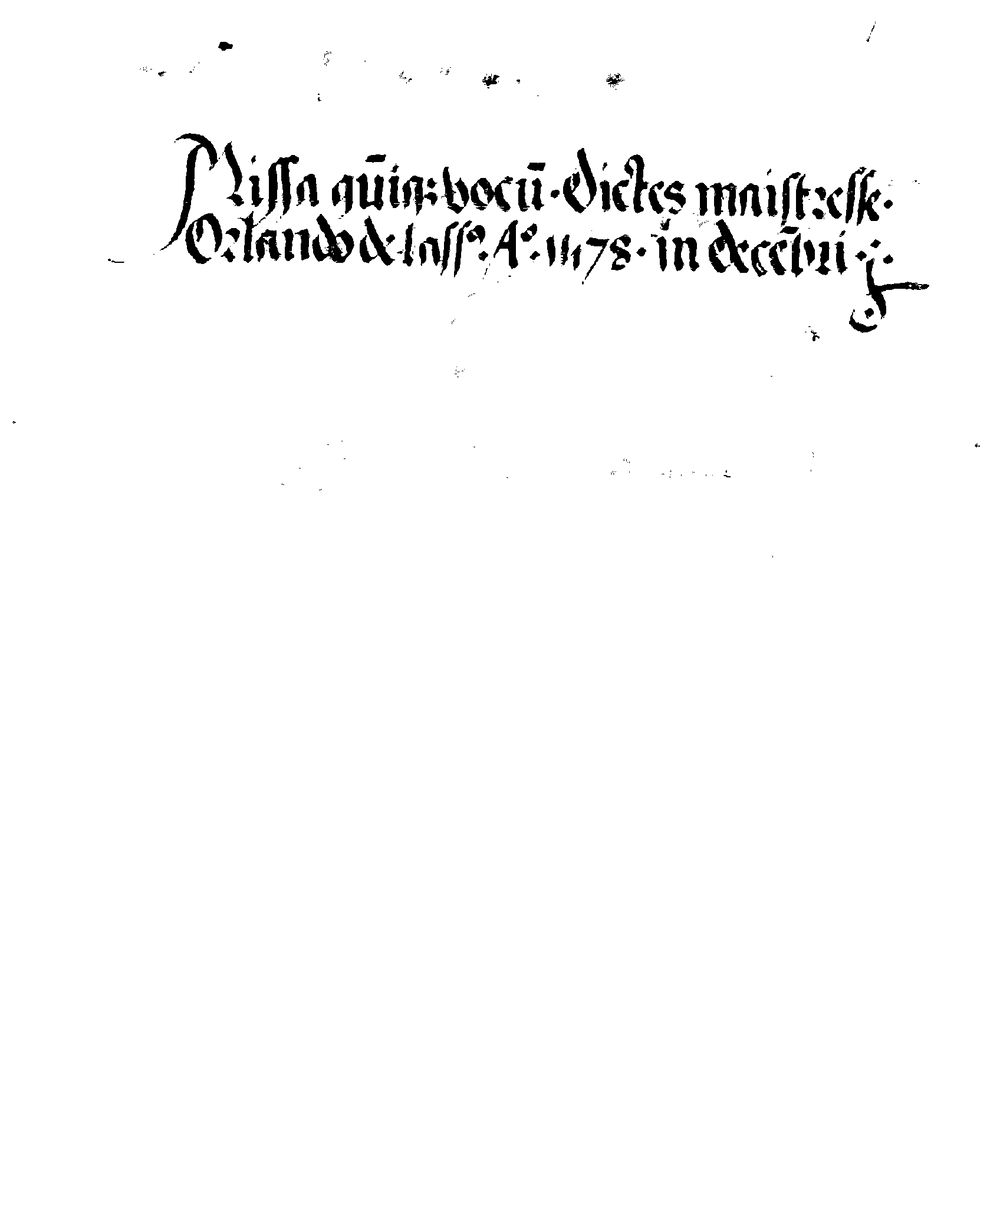 Missa quīqꝫ vocū · Dictes maistresse ·
Orlando de lassº. Aº. 1578 · in decēbri